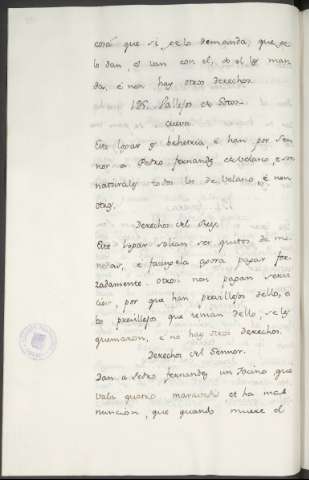 cosa que si, se lo demanda, que ge
lo dan, et van con el, do el les man
da, e non hay otros derechos.
195. Vallejo et Sotos-
cueva.
Este logar es behetria, e han por Sen
nor a Pedro Fernandez de Velasco, e son
naturales todos los de Velasco, e non
otros.
Derechos del Rey.
Este logar solian ser quitos de mo
nedas, e fazengela agora pagar for
zadamente. otrosi non pagan servi
cios, por que han previllejos dello, e
los previllejos que tenian dello, se les
quemaron, e no hay otros derechos.
Derechos del Sennor.
Dan a Pedro Fernandez un tocino que
vala quatro maravedis et ha mas
nuncion, que quando muere el